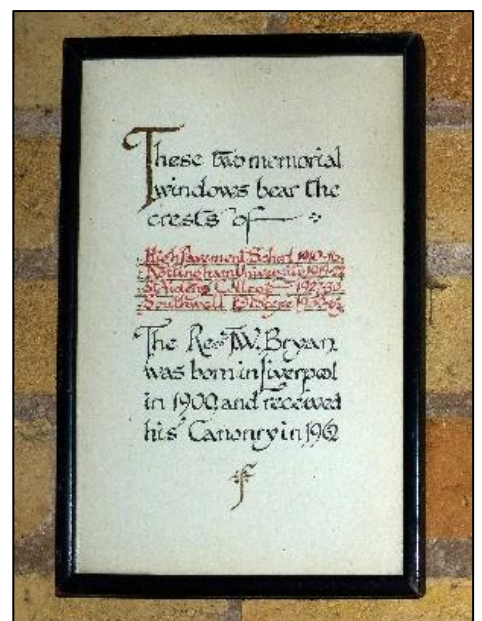 These two memorial
windows bear the
crests of
High Pavement School 1910-16
Nottingham University 1919-
St Aidens College 1927-30
Southwell Diocese
The Revd T.W. Bryan
was born in Liverpool
in 1900 and received
his Canonry in 1962